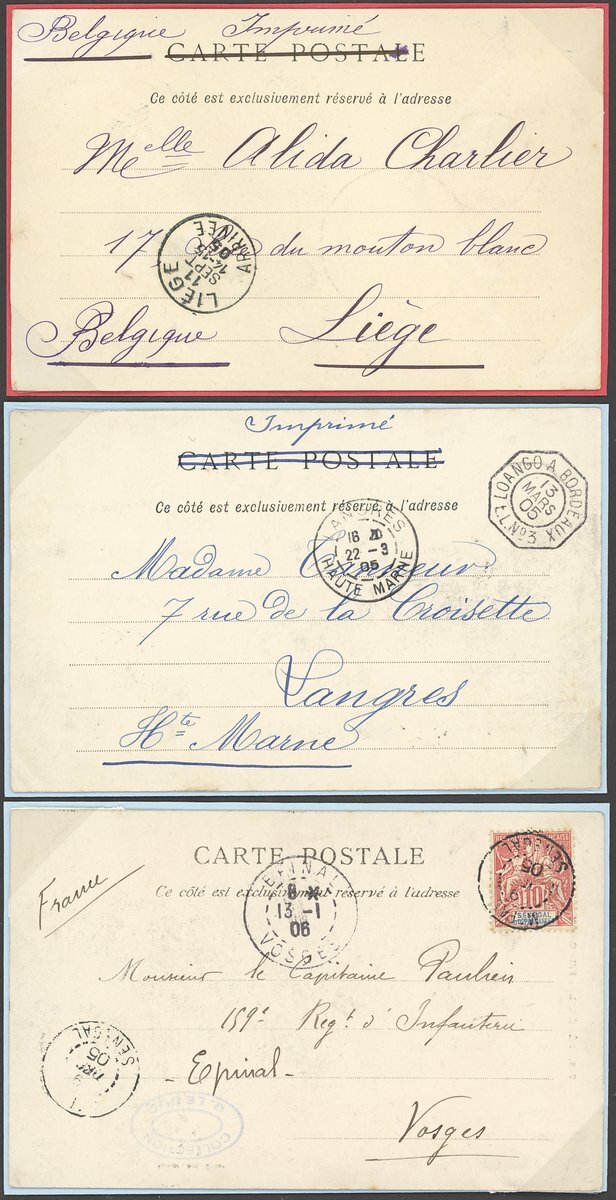 Belgique Imprimé
CARTE POSTALE
Ce côté est exclusivement réservé à l'adresse
Melle Alida Charlier
17 Rue du mouton blanc
LIÉGE
11
SEPT
14-15
05
ARRIVÉE
Belgique Liège
Imprimé
CARTE POSTALE
Ce côté est exclusivement réservé à l'adresse
LOANGO A BORDEAUX
13
MARS
05
L.L. Nº3
LANGRES
22 - 3
05
HAUTE MARNE
Madame
7 rue de la Croisette
Langres
Hte Marne
CARTE POSTALE
Ce côté est exclusivement réservé à l'adresse
France
SENEGAL
05
10
SENEGAL
EPINAL
8
13 - 1
06
VOSGES
Monsieur le Capitaine Paulien
159e Regt d'Infanterie
- Epinal -
Vosges
SENEGAL
05
COLLECTION